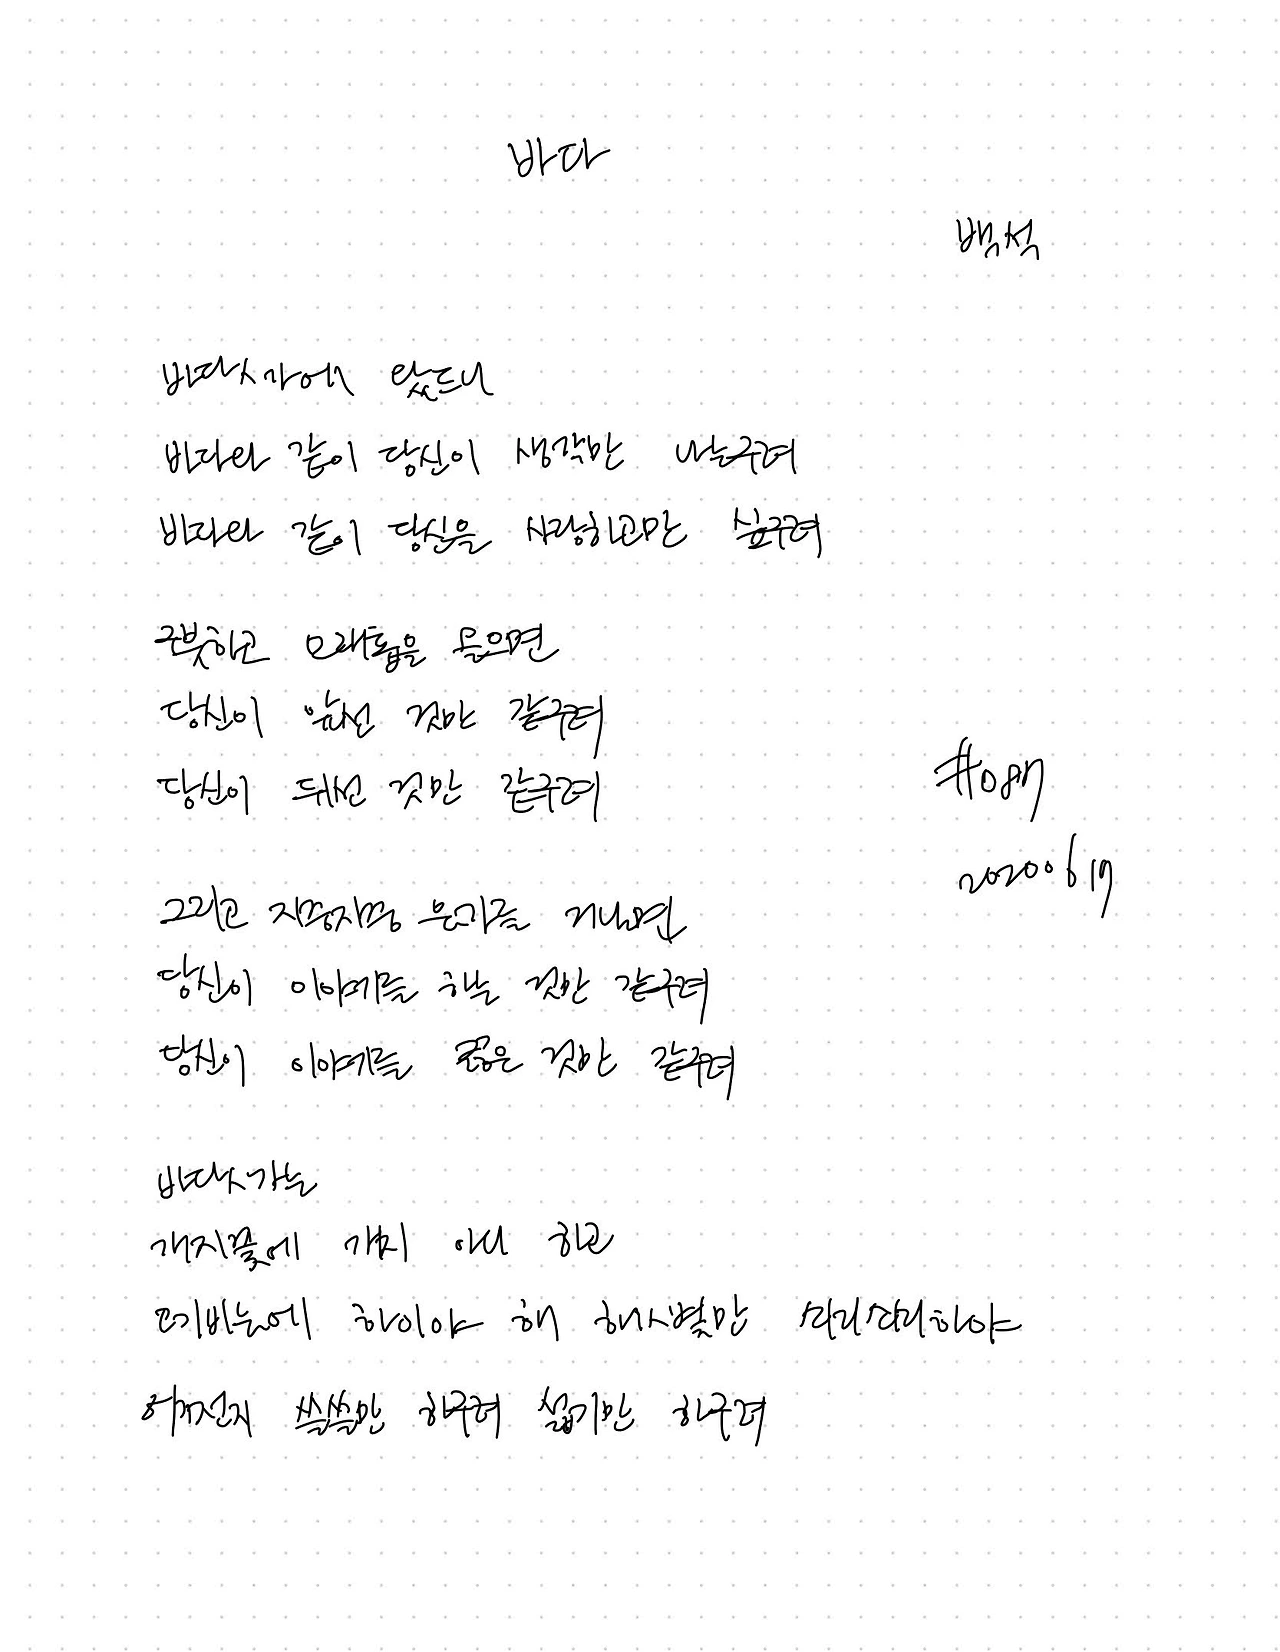 바다
백석
바닷가에 왔드니
바다와 같이 당신이 생각만 나는구려
바다와 같이 당신을 사랑하고만 싶구려
구붓하고 모래톱을 오르면
당신이 앞선 것만 같구려
당신이 뒤선 것만 같구려
#087
20200617
그리고 지중지중 물가를 거닐면
당신이 이야기를 하는 것만 같구려
당신이 이야기를 끊은 것만 같구려
바닷가는
개지꽃에 개지 아니 하고
고기비눌에 하이야 해 햇볕만 쇠리쇠리하야
어쩐지 쓸쓸만 하구려 섧기만 하구려